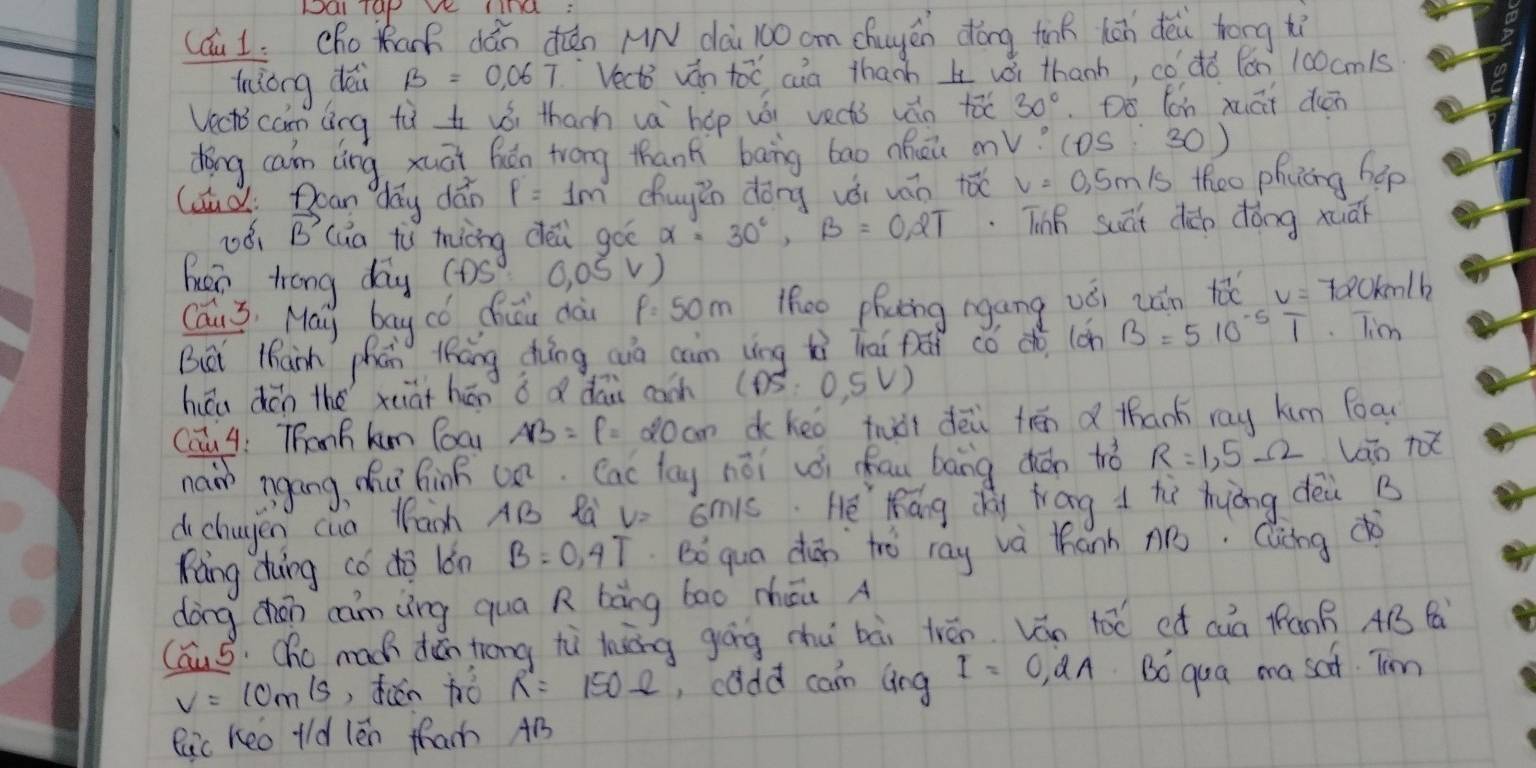 Bài tập về nhà :
Câu 1: Cho thanh dẫn điện MN dài 100 cm chuyển động tịnh tiến đều trong từ
trường đều B = 0,06 T. Vectơ vận tốc của thanh ⊥ với thanh, có độ lớn 100cm/s.
Vectơ cảm ứng từ ⊥ với thanh và hợp với vectơ vận tốc 30°. Độ lớn xuất điện
động cảm ứng xuất hiện trong thanh bằng bao nhiêu mV? (ĐS: 30)
Câu 2: Đoạn dây dẫn l = 1m chuyển động với vận tốc v = 0,5m/s theo phương hợp
với B⃗ của từ trường đều góc α = 30°, B = 0,2T. Tính suất điện động xuất
hiện trong dây (ĐS: 0,05 V)
Câu 3. Máy bay có chiều dài l = 50m theo phương ngang với vận tốc v = 720km/h
Biết thành phần thẳng đứng của cảm ứng từ Trái Đất có độ lớn B = 5 10⁻⁵ T. Tìm
hiệu điện thế xuất hiện ở 2 đầu cánh (ĐS: 0,5V)
Câu 4: Thanh kim loại AB = l = 20cm đc kéo trượt đều trên 2 thanh ray kim loại
nằm ngang, như hình vẽ. Các ray nối với nhau bằng điện trở R = 1,5 Ω Vận tốc
di chuyển của thanh AB là v = 6m/s. Hệ thống đặt trong 1 từ trường đều B
thẳng đứng có độ lớn B = 0,4T. Bỏ qua điện trở ray và thanh AB. Cường độ
dòng điện cảm ứng qua R bằng bao nhiêu A
Câu 5. Cho mạch điện trong từ trường giống như bài trên. Vận tốc cđ của thanh AB là
v = 10m/s, điện trở R = 150 Ω, cđdđ cảm ứng I = 0,2A. Bỏ qua ma sát. Tìm
lực kéo t/d lên thanh AB